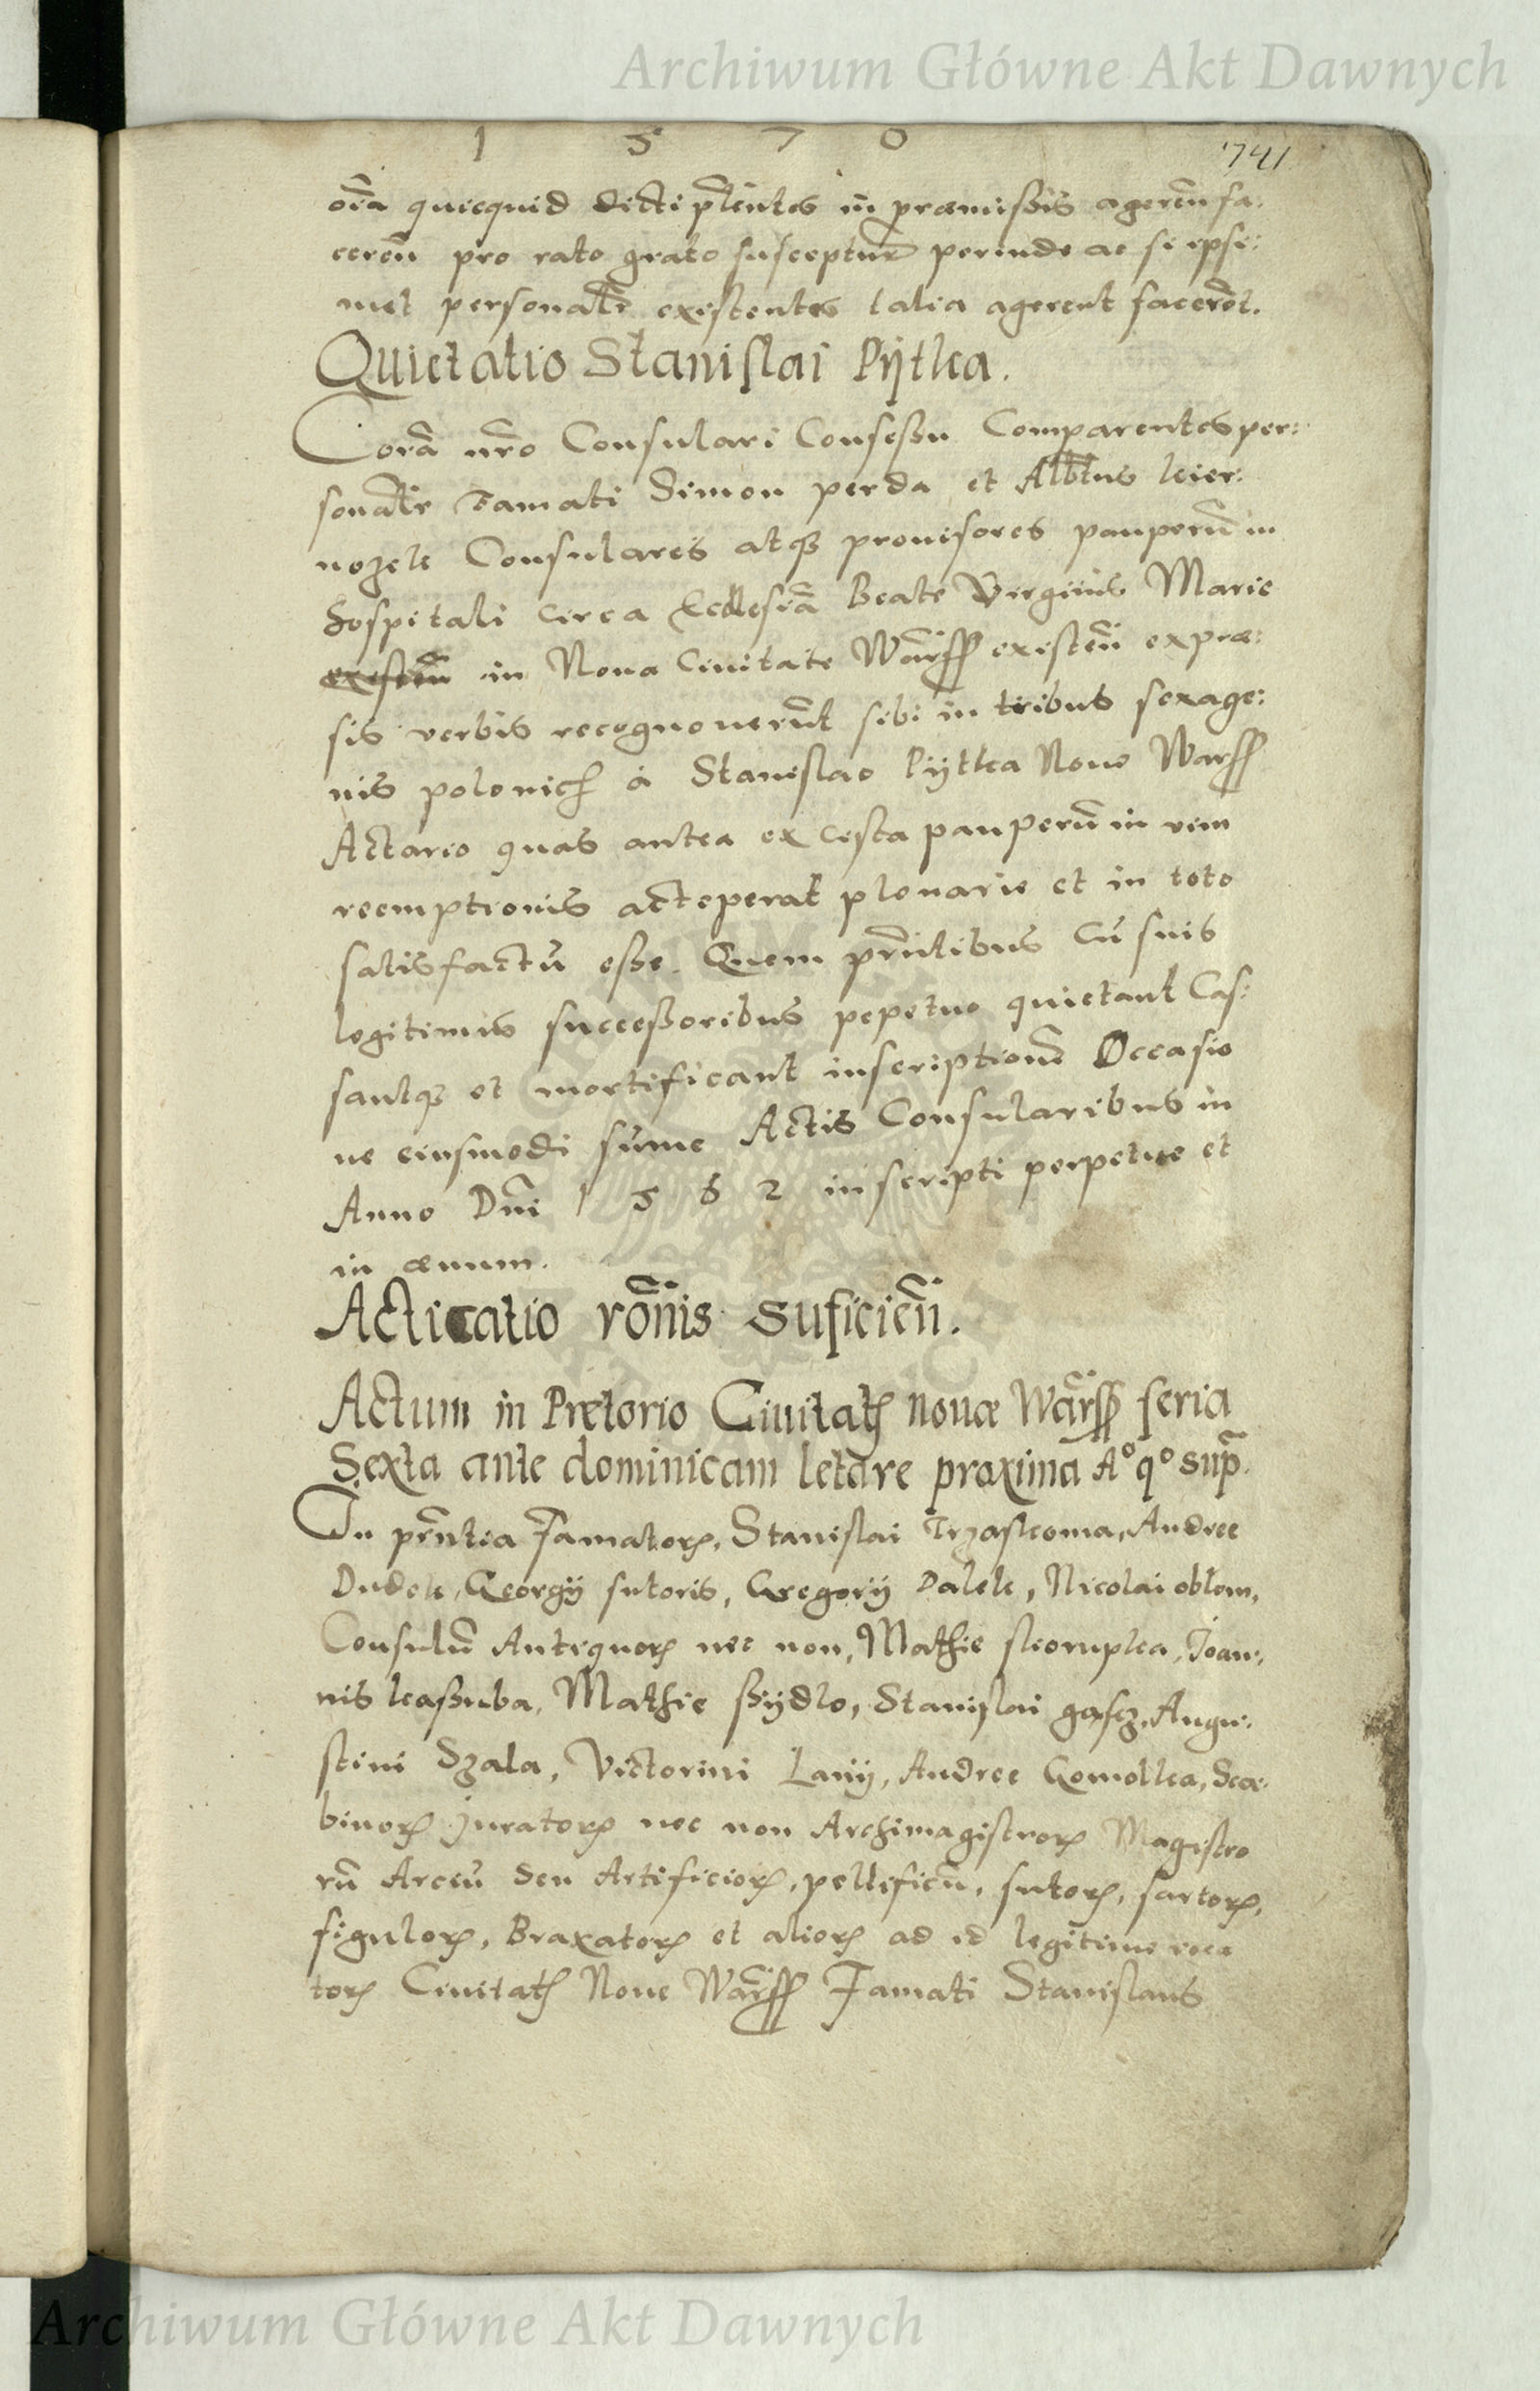 Archiwum Główne Akt Dawnych
1 5 7 0
741
oĩa quicquid dicti pĩlentes in præmissis agereñ fa:
cereñ pro rato grato susceptur̃ perinde ac si ipsi:
met personalr̃ existentes talia agerent facerẽt.
Quietatio Stanislai Pijtka.
Corã nr̃o Consulari Consessu Comparentes per:
sonalr̃ Famati Simon perda et Albt̃us kier:
nozek Consulares atq̃ prouisores pauperũ in
hospitali circa Ecclesiã Beate Virginis Marie
existeñ in Noua Ciuitate Warss̃ existeñ expræ:
sis verbis recognouerũt sibi in tribus sexage:
nis polonich à Stanislao Pijtka Noue Warss̃
Actario quas antea ex cista pauperũ in vim
reemptionis acceperat plenarie et in toto
satisfactũ esse. Quem pñtibus cũ suis
legitimis successoribus pepetuo quietant Cas:
santq̃ et mortificant inscriptionẽ Occasio
ne eiusmodi sum̃e Actis Consularibus in
Anno Dñi 1 5 6 2 inscripti perpetue et
in æuum.
Acticatio rõnis suficieñ.
Actum in Pretorio Ciuitatꝭ nouæ Warss̃ feria
Sexta ante dominicam letare proximã Aº qº sup̃.
In pñtia Famatoꝝ, Stanislai Trzaskoma, Andree
Dudek, Georgij sutoris, Gregorij Dalek, Nicolai oblom,
Consulũ Antiquoꝝ nec non, Mathie skorupka, Joan:
nis kassuba, Mathie ssijdlo, Stanislai gasz, Augu:
stini Szala, Victorini Lanij, Andree Gomolka, Sca:
binoꝝ Juratoꝝ nec non Archimagistroꝝ Magistro
rũ Arciũ seu Artificioꝝ, pellificũ, sutoꝝ, sartoꝝ,
figuloꝝ, Braxatoꝝ et alioꝝ ad id legitime voca
toꝝ Ciuitatꝭ Noue Warss̃ Famati Stanislaus
Archiwum Główne Akt Dawnych